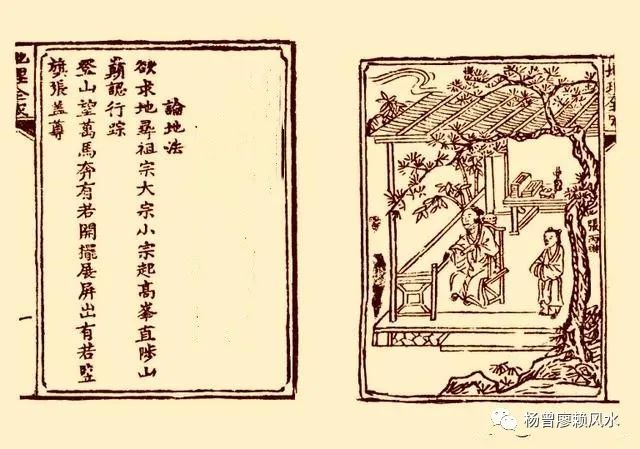 張丙
論地法
欲求地尋祖宗大宗小宗起高峯直陟山
巔認行踪
登山望萬馬奔有若開擺展屏出有若竪
旗張蓋尊
一
杨曾廖赖风水